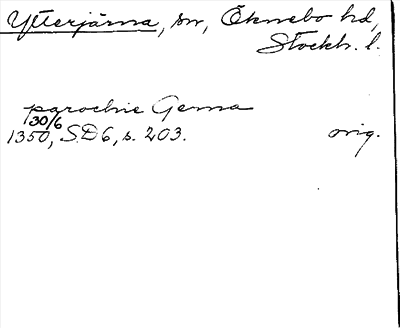 Ytterjärna, sn, Öknebo hd,
Stockh. l.
parochie Gerna
30/6
1350, SD6, s. 203. orig.